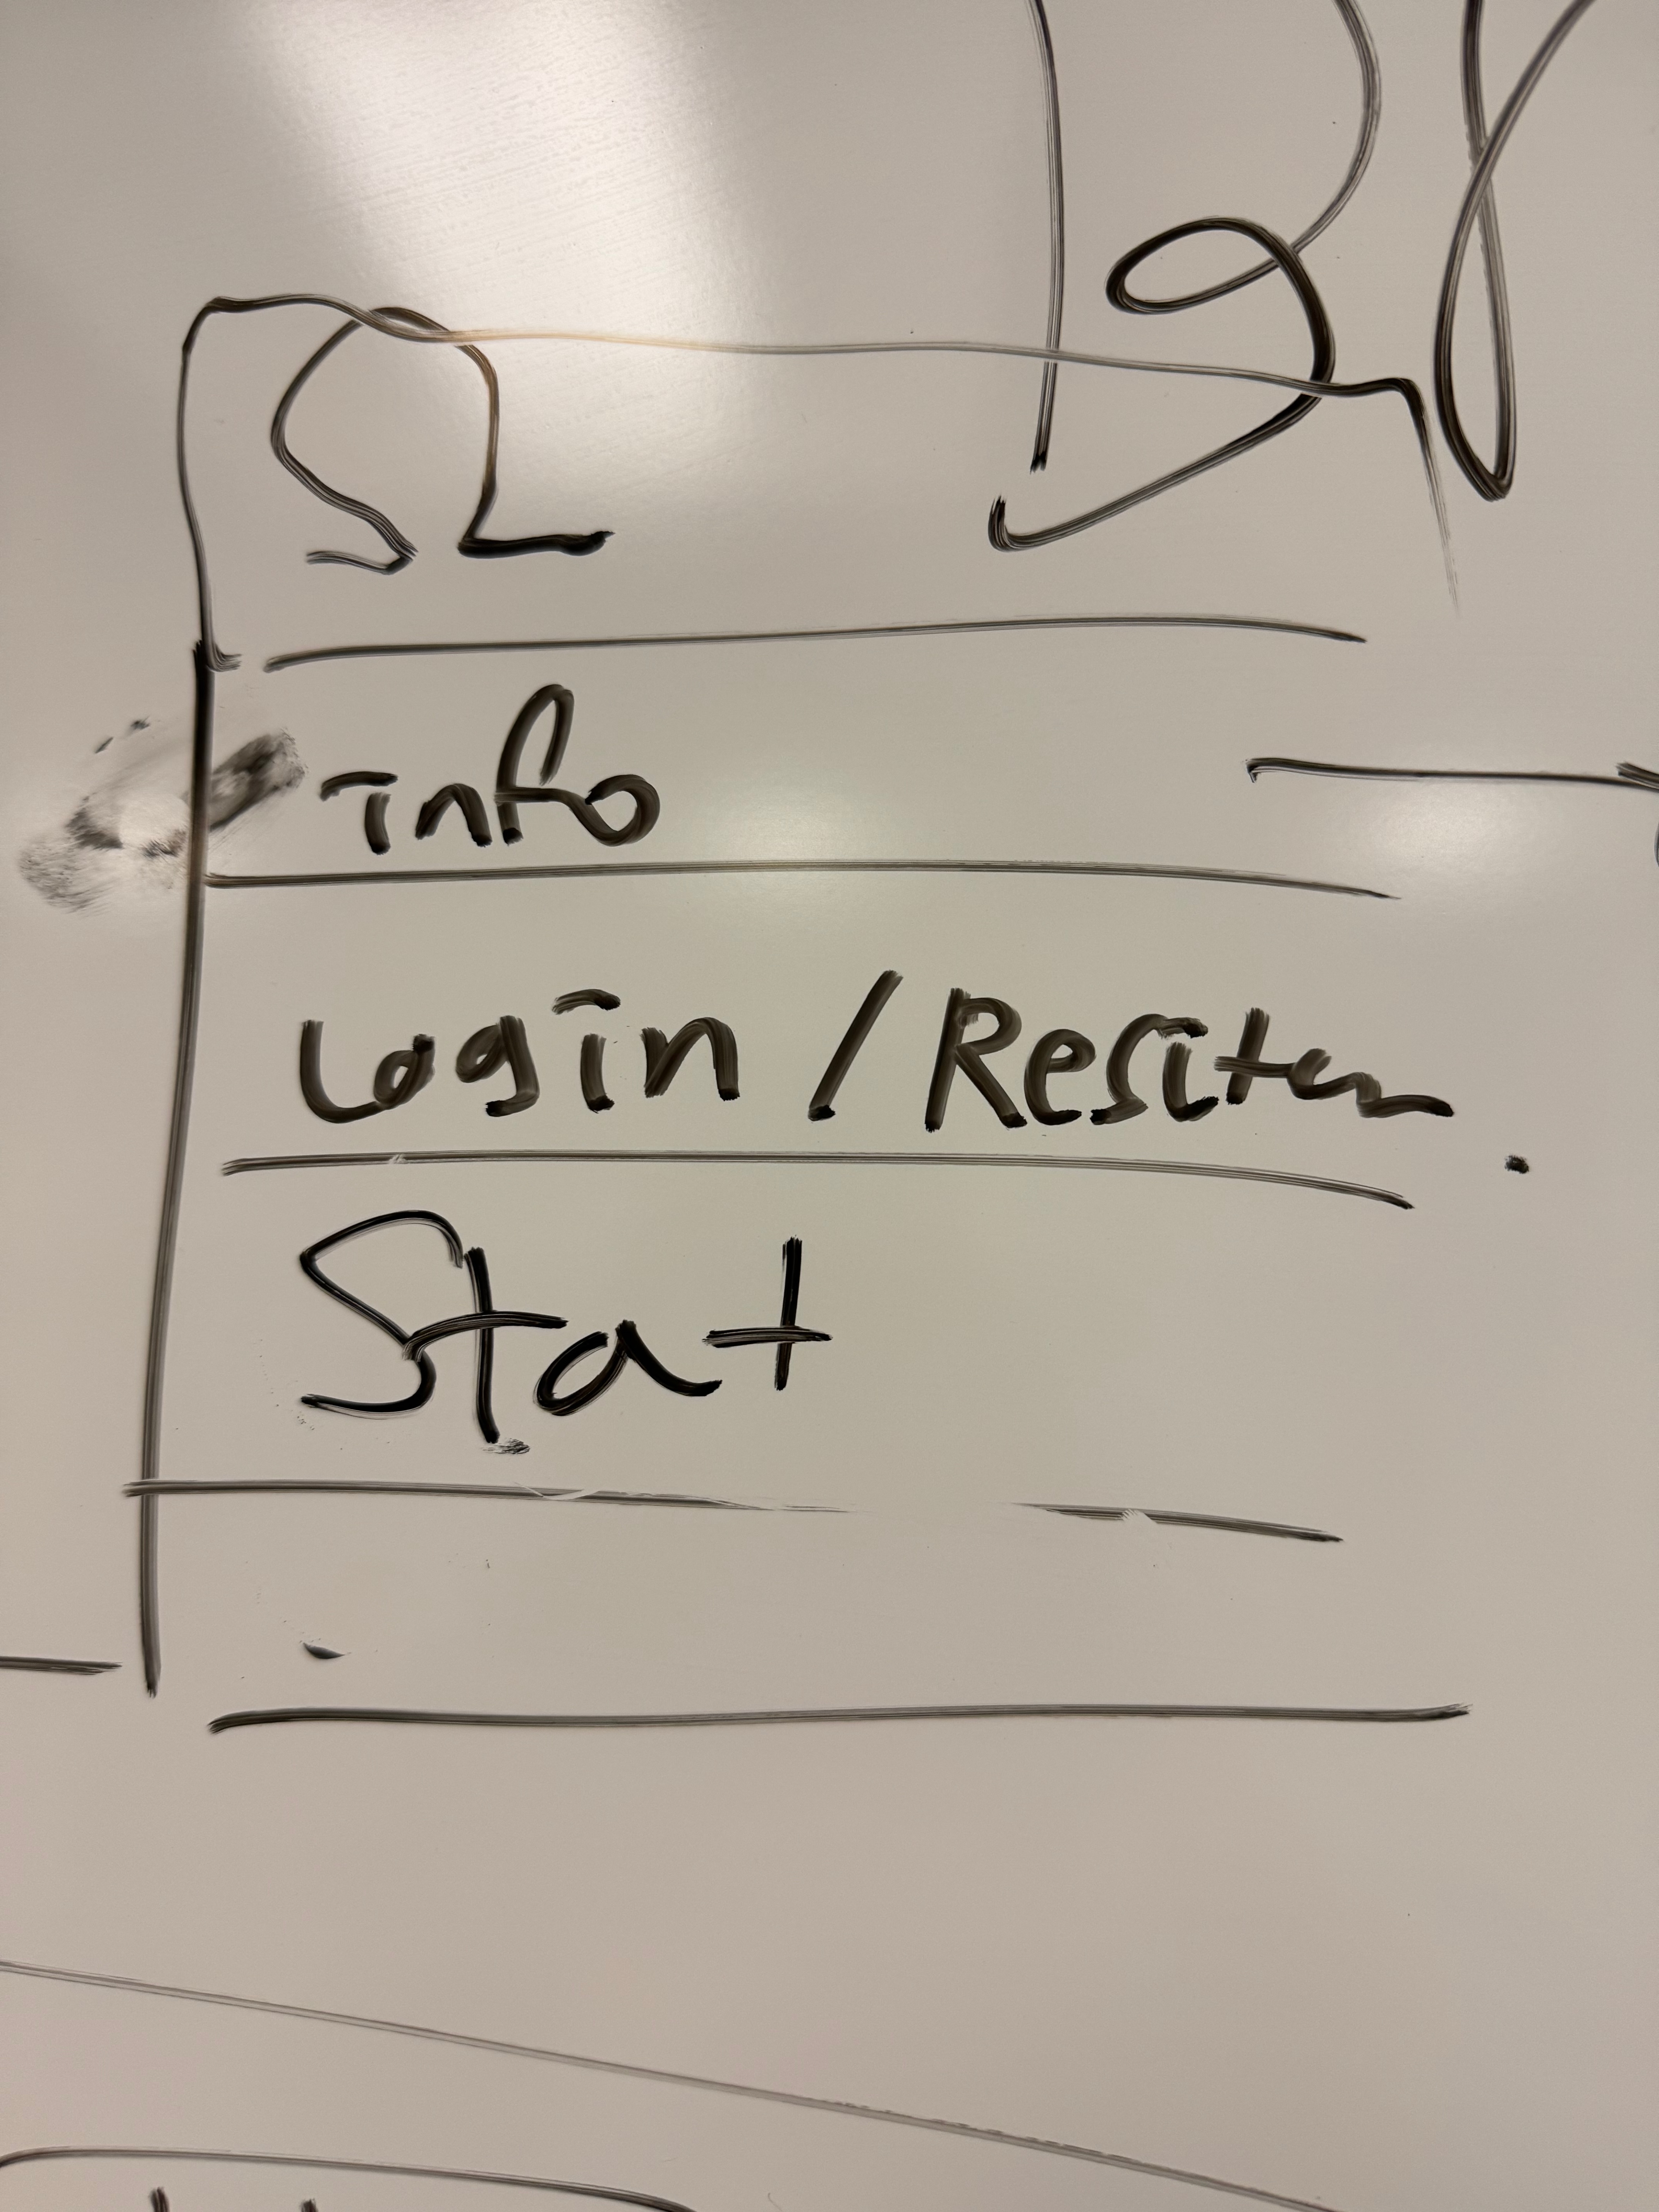 info
Login / Resiter
Stat